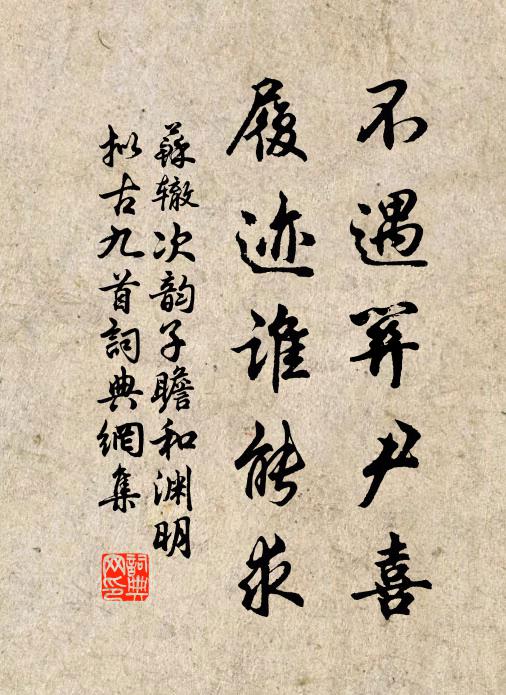 不遇關尹喜
履迹誰能求
蘇辙次韵子瞻和渊明
拟古九首詞典網集
詞典
网印